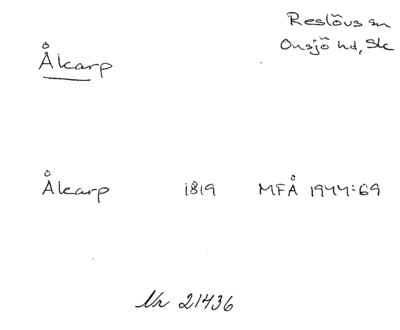 Reslövs sn
Onsjö hd, Sk
Åkarp
Åkarp 1819 MFÅ 1944:69
Nr 21436